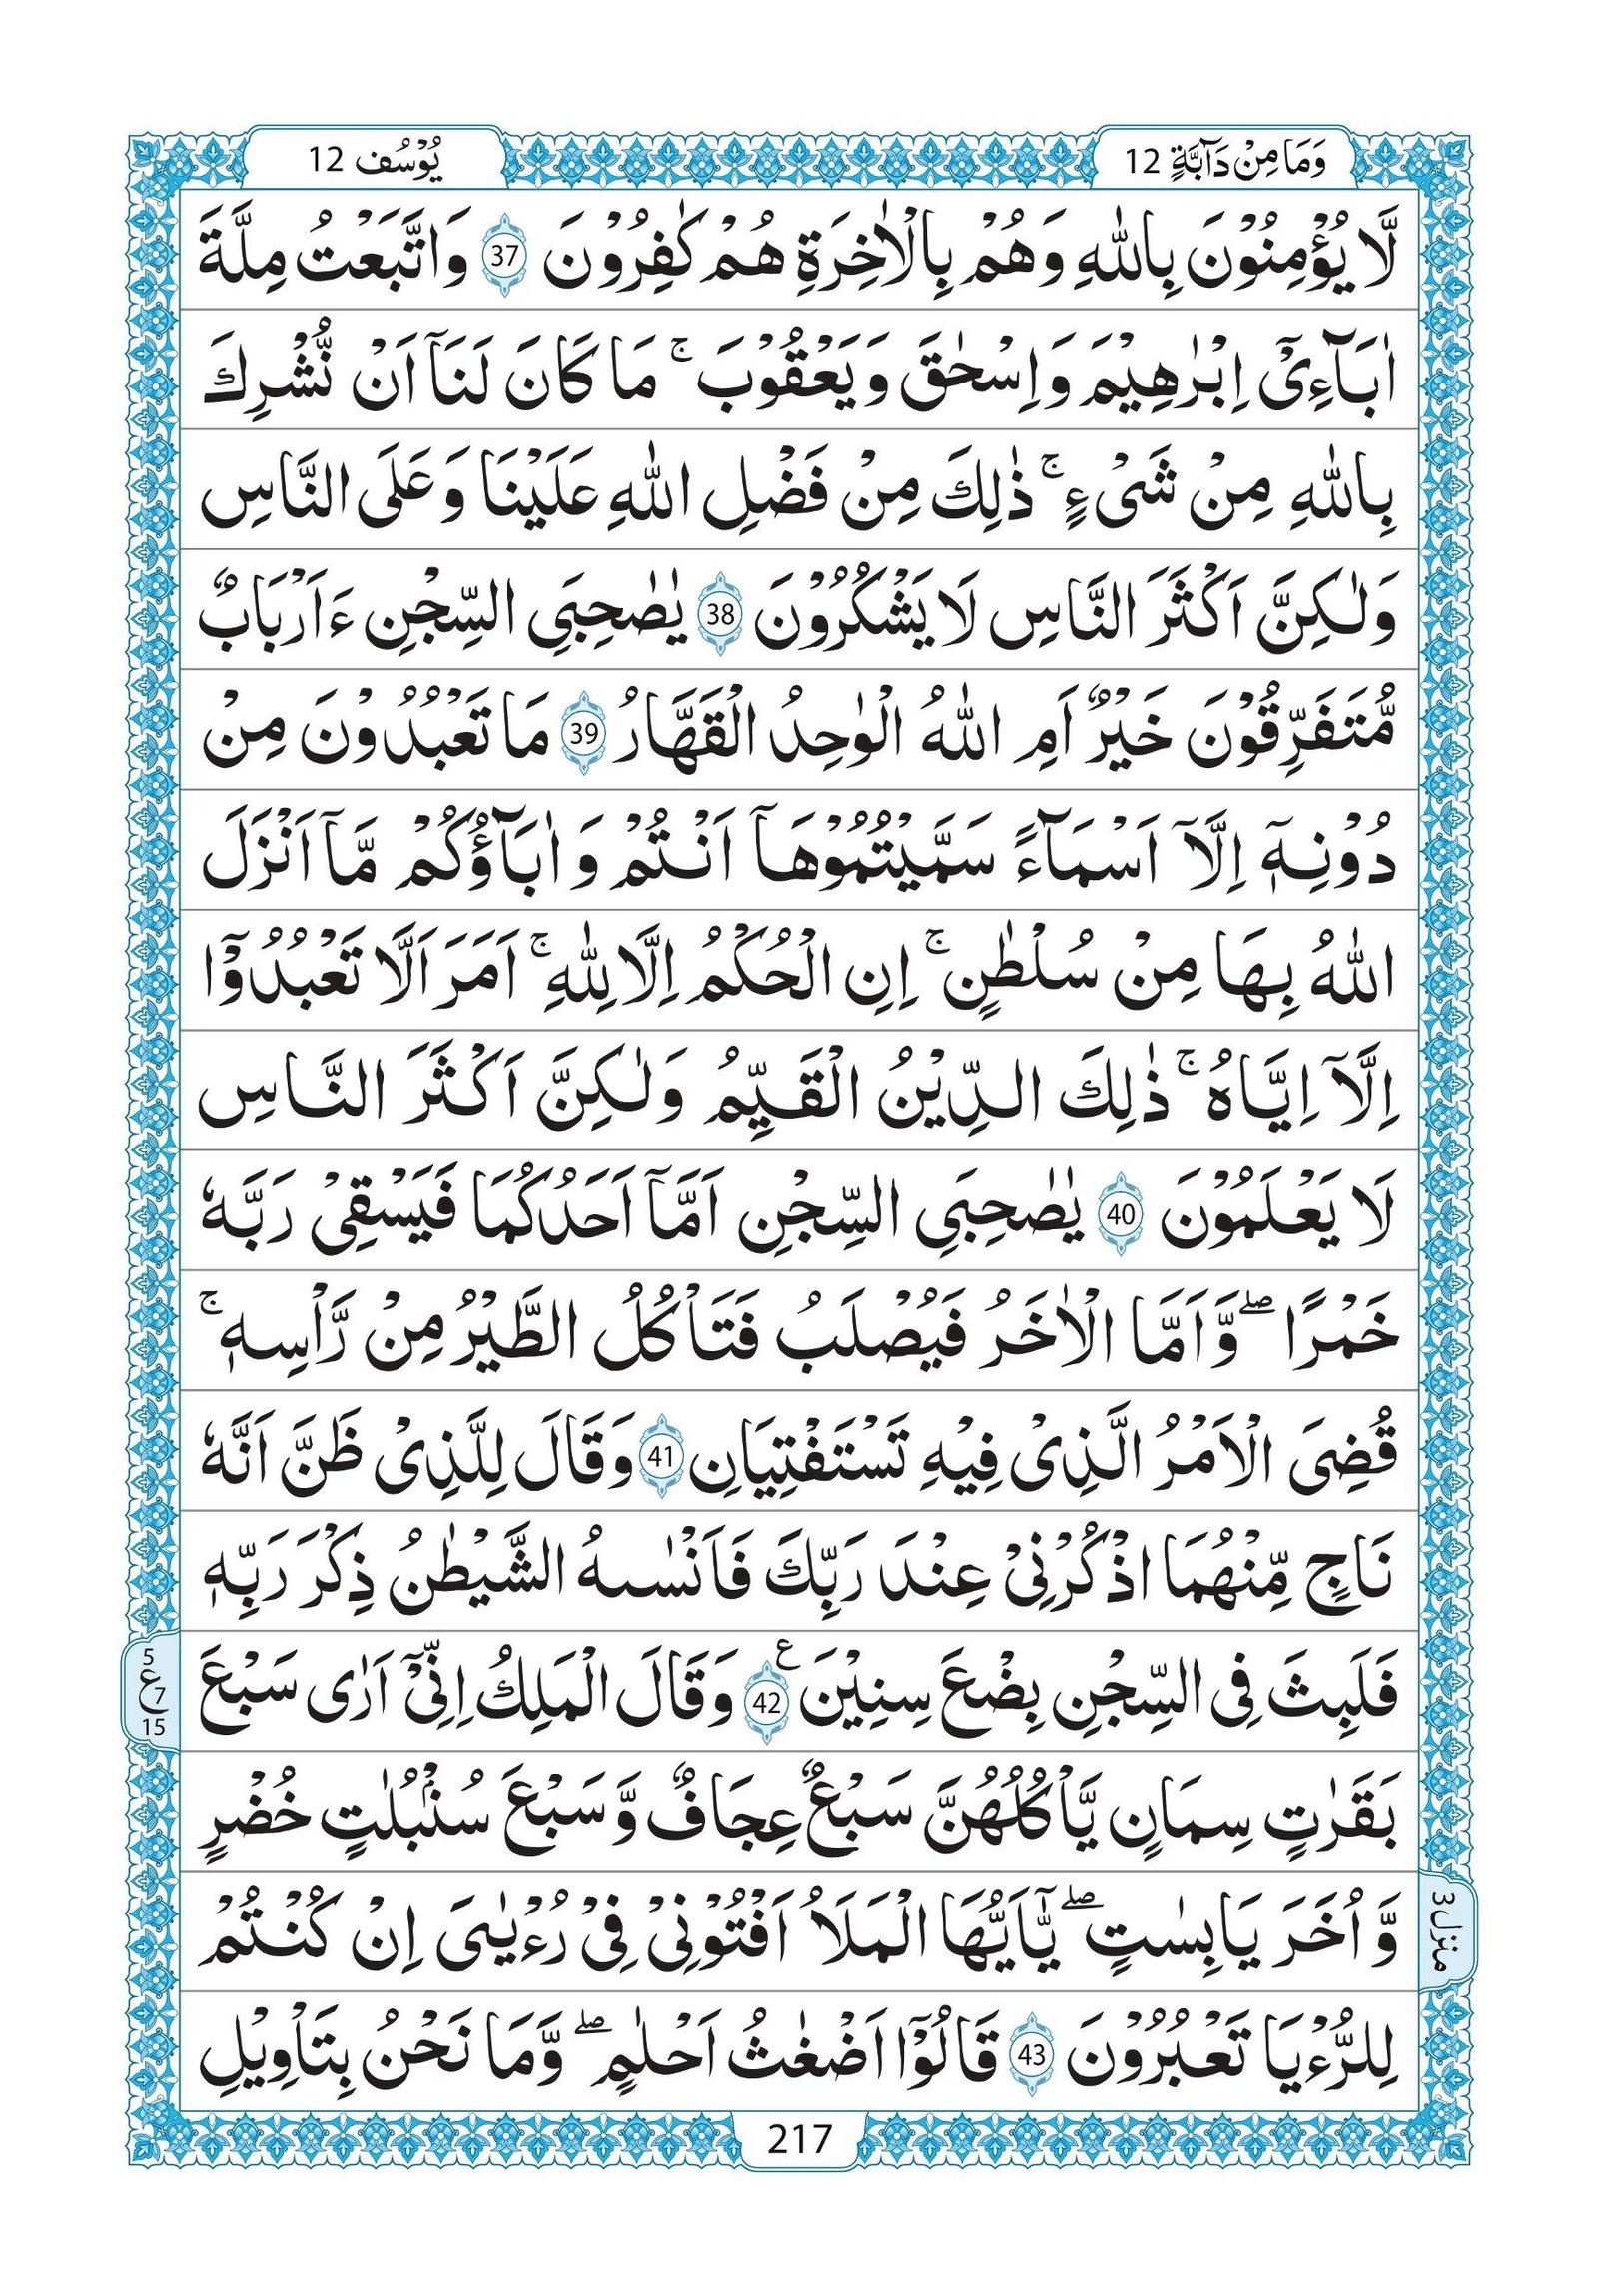 وَمَا مِنْ دَآبَّةٍ 12
يُوْسُف 12
لَّا يُؤْمِنُوْنَ بِاللّٰهِ وَهُمْ بِالْاٰخِرَةِ هُمْ كٰفِرُوْنَ 37 وَاتَّبَعْتُ مِلَّةَ
اٰبَآءِىْۤ اِبْرٰهِيْمَ وَاِسْحٰقَ وَيَعْقُوْبَ ۚ مَا كَانَ لَنَاۤ اَنْ نُّشْرِكَ
بِاللّٰهِ مِنْ شَىْءٍ ۚ ذٰلِكَ مِنْ فَضْلِ اللّٰهِ عَلَيْنَا وَعَلَى النَّاسِ
وَلٰكِنَّ اَكْثَرَ النَّاسِ لَا يَشْكُرُوْنَ 38 يٰصٰحِبَىِ السِّجْنِ ءَاَرْبَابٌ
مُّتَفَرِّقُوْنَ خَيْرٌ اَمِ اللّٰهُ الْوٰحِدُ الْقَهَّارُ 39 مَا تَعْبُدُوْنَ مِنْ
دُوْنِهٖۤ اِلَّاۤ اَسْمَآءً سَمَّيْتُمُوْهَاۤ اَنْتُمْ وَ اٰبَآؤُكُمْ مَّاۤ اَنْزَلَ
اللّٰهُ بِهَا مِنْ سُلْطٰنٍ ۚ اِنِ الْحُكْمُ اِلَّا لِلّٰهِ ۚ اَمَرَ اَلَّا تَعْبُدُوْۤا
اِلَّاۤ اِيَّاهُ ۚ ذٰلِكَ الدِّيْنُ الْقَيِّمُ وَلٰكِنَّ اَكْثَرَ النَّاسِ
لَا يَعْلَمُوْنَ 40 يٰصٰحِبَىِ السِّجْنِ اَمَّاۤ اَحَدُكُمَا فَيَسْقِىْ رَبَّهٗ
خَمْرًا ۖ وَّاَمَّا الْاٰخَرُ فَيُصْلَبُ فَتَاْكُلُ الطَّيْرُ مِنْ رَّاْسِهٖ ۚ
قُضِىَ الْاَمْرُ الَّذِىْ فِيْهِ تَسْتَفْتِيَانِ 41 وَقَالَ لِلَّذِىْ ظَنَّ اَنَّهٗ
نَاجٍ مِّنْهُمَا اذْكُرْنِىْ عِنْدَ رَبِّكَ فَاَنْسٰىهُ الشَّيْطٰنُ ذِكْرَ رَبِّهٖ
فَلَبِثَ فِى السِّجْنِ بِضْعَ سِنِيْنَ ع 42 وَقَالَ الْمَلِكُ اِنِّىْۤ اَرٰى سَبْعَ
5 ع 7 15
بَقَرٰتٍ سِمَانٍ يَّاْكُلُهُنَّ سَبْعٌ عِجَافٌ وَّسَبْعَ سُنْۢبُلٰتٍ خُضْرٍ
وَّ اُخَرَ يَابِسٰتٍ ۖ يٰۤاَيُّهَا الْمَلَاُ اَفْتُوْنِىْ فِىْ رُءْيٰىىَ اِنْ كُنْتُمْ
منزل 3
لِلرُّءْيَا تَعْبُرُوْنَ 43 قَالُوْۤا اَضْغٰثُ اَحْلٰمٍ ۖ وَّمَا نَحْنُ بِتَاْوِيْلِ
217